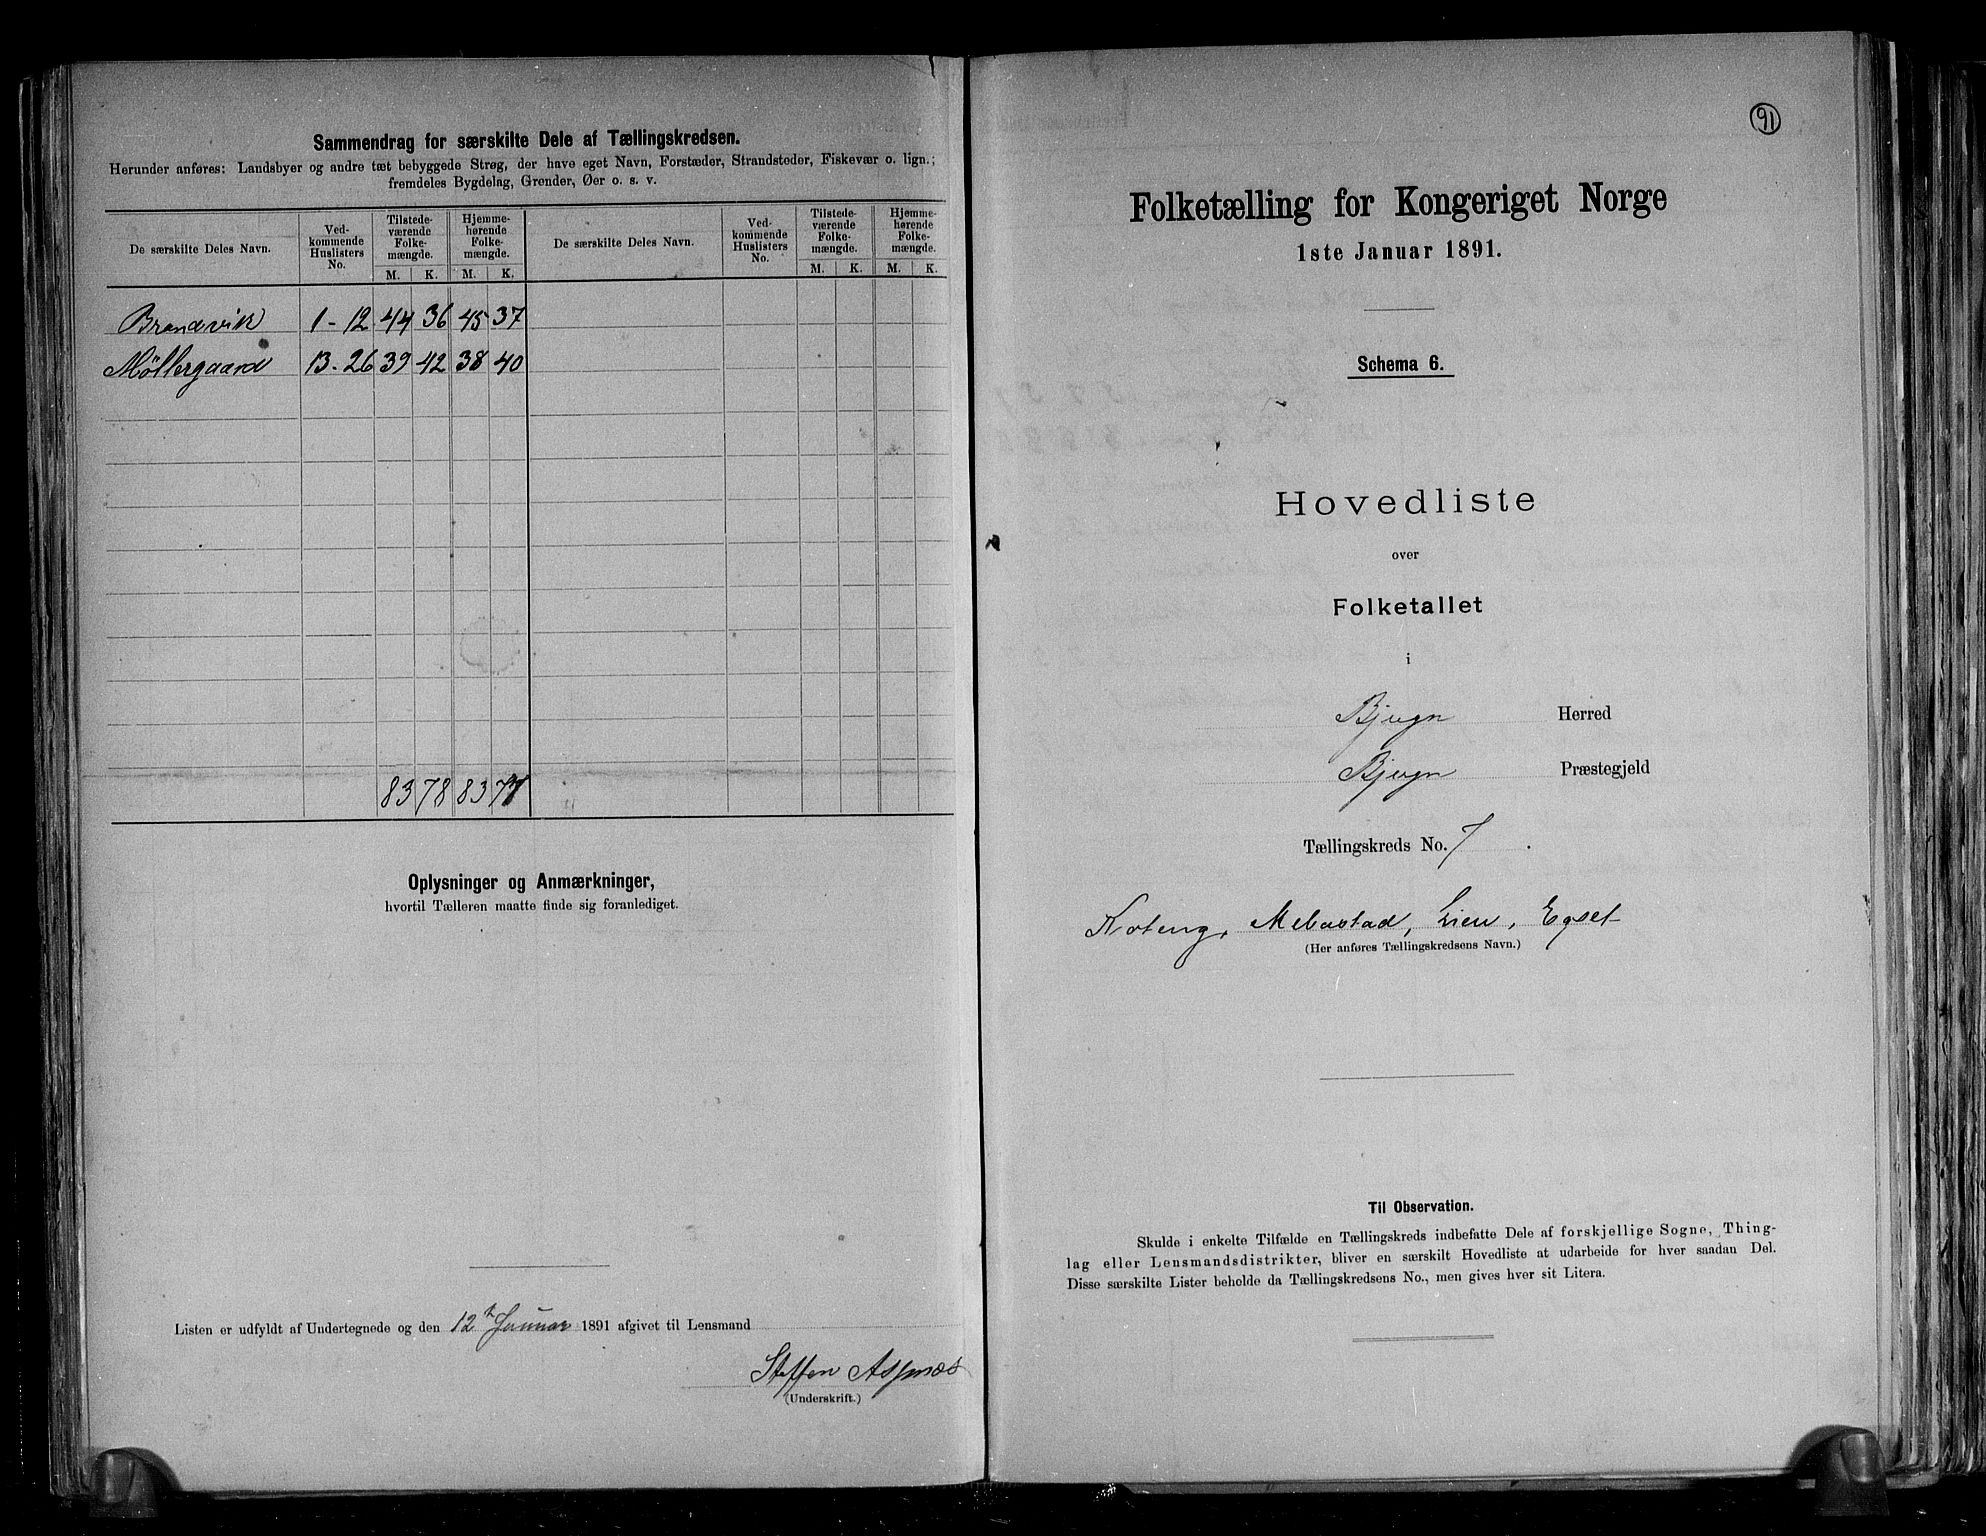 Sammendrag for særskilte Dele af Tællingskredsen.
Herunder anføres: Landsbyer og andre tæt bebyggede Strøg, der have eget Navn, Forstæder, Strandsteder, Fiskevær o. lign.;
fremdeles Bygdelag, Grender, Øer o. s. v.
De særskilte Deles Navn. Ved-kommende Huslisters No. Tilstede-værende Folke-mængde. Hjemme-hørende Folke-mængde. De særskilte Deles Navn. Ved-kommende Huslisters No. Tilstede-værende Folke-mængde. Hjemme-hørende Folke-mængde.
M. K. M. K. M. K. M. K.
Brandvik 1-12 44 36 45 37
Møllergaard 13-26 39 42 38 40
83 78 83 77
Oplysninger og Anmærkninger,
hvortil Tælleren maatte finde sig foranlediget.
Listen er udfyldt af Undertegnede og den 12te Januar 1891 afgivet til Lensmand
Steffen
(Underskrift.)
91
Folketælling for Kongeriget Norge
1ste Januar 1891.
Schema 6.
Hovedliste
over
Folketallet
i
Bjugn Herred
Bjugn Præstegjeld
Tællingskreds No. 7.
Koteng, Mebostad, Lien, Egset
(Her anføres Tællingskredsens Navn.)
Til Observation.
Skulde i enkelte Tilfælde en Tællingskreds indbefatte Dele af forskjellige Sogne, Thing-
lag eller Lensmandsdistrikter, bliver en særskilt Hovedliste at udarbeide for hver saadan Del.
Disse særskilte Lister beholde da Tællingskredsens No., men gives hver sit Litera.